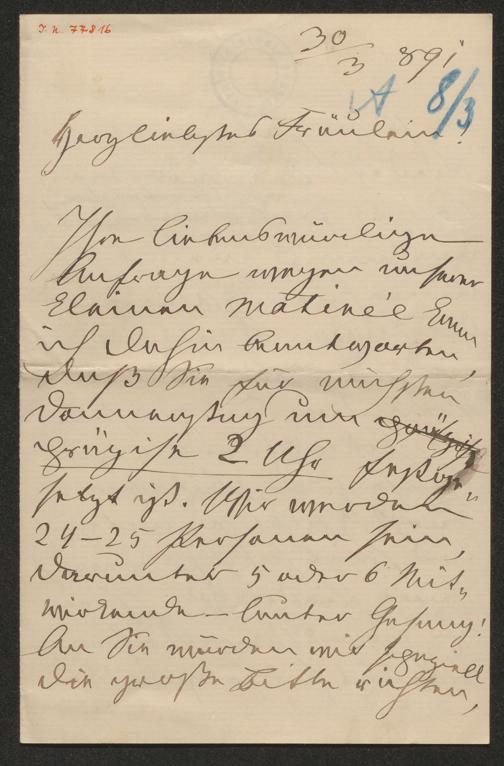 I. N. 77816
30/3 891
A 8/3
Herzliebstes Fräulein!
Ihre liebenswürdige
Anfrage wegen unserer
kleinen Matinée kann
ich dahin beantworten,
daß Sie für nächsten
Donnerstag um
präzise 2 Uhr festge-
setzt ist. Wir werden
24-25 Personen sein,
darunter 5 oder 6 Mit-
wirkende – lauter Gesang!
An Sie würden wir speziell
die große Bitte richten,